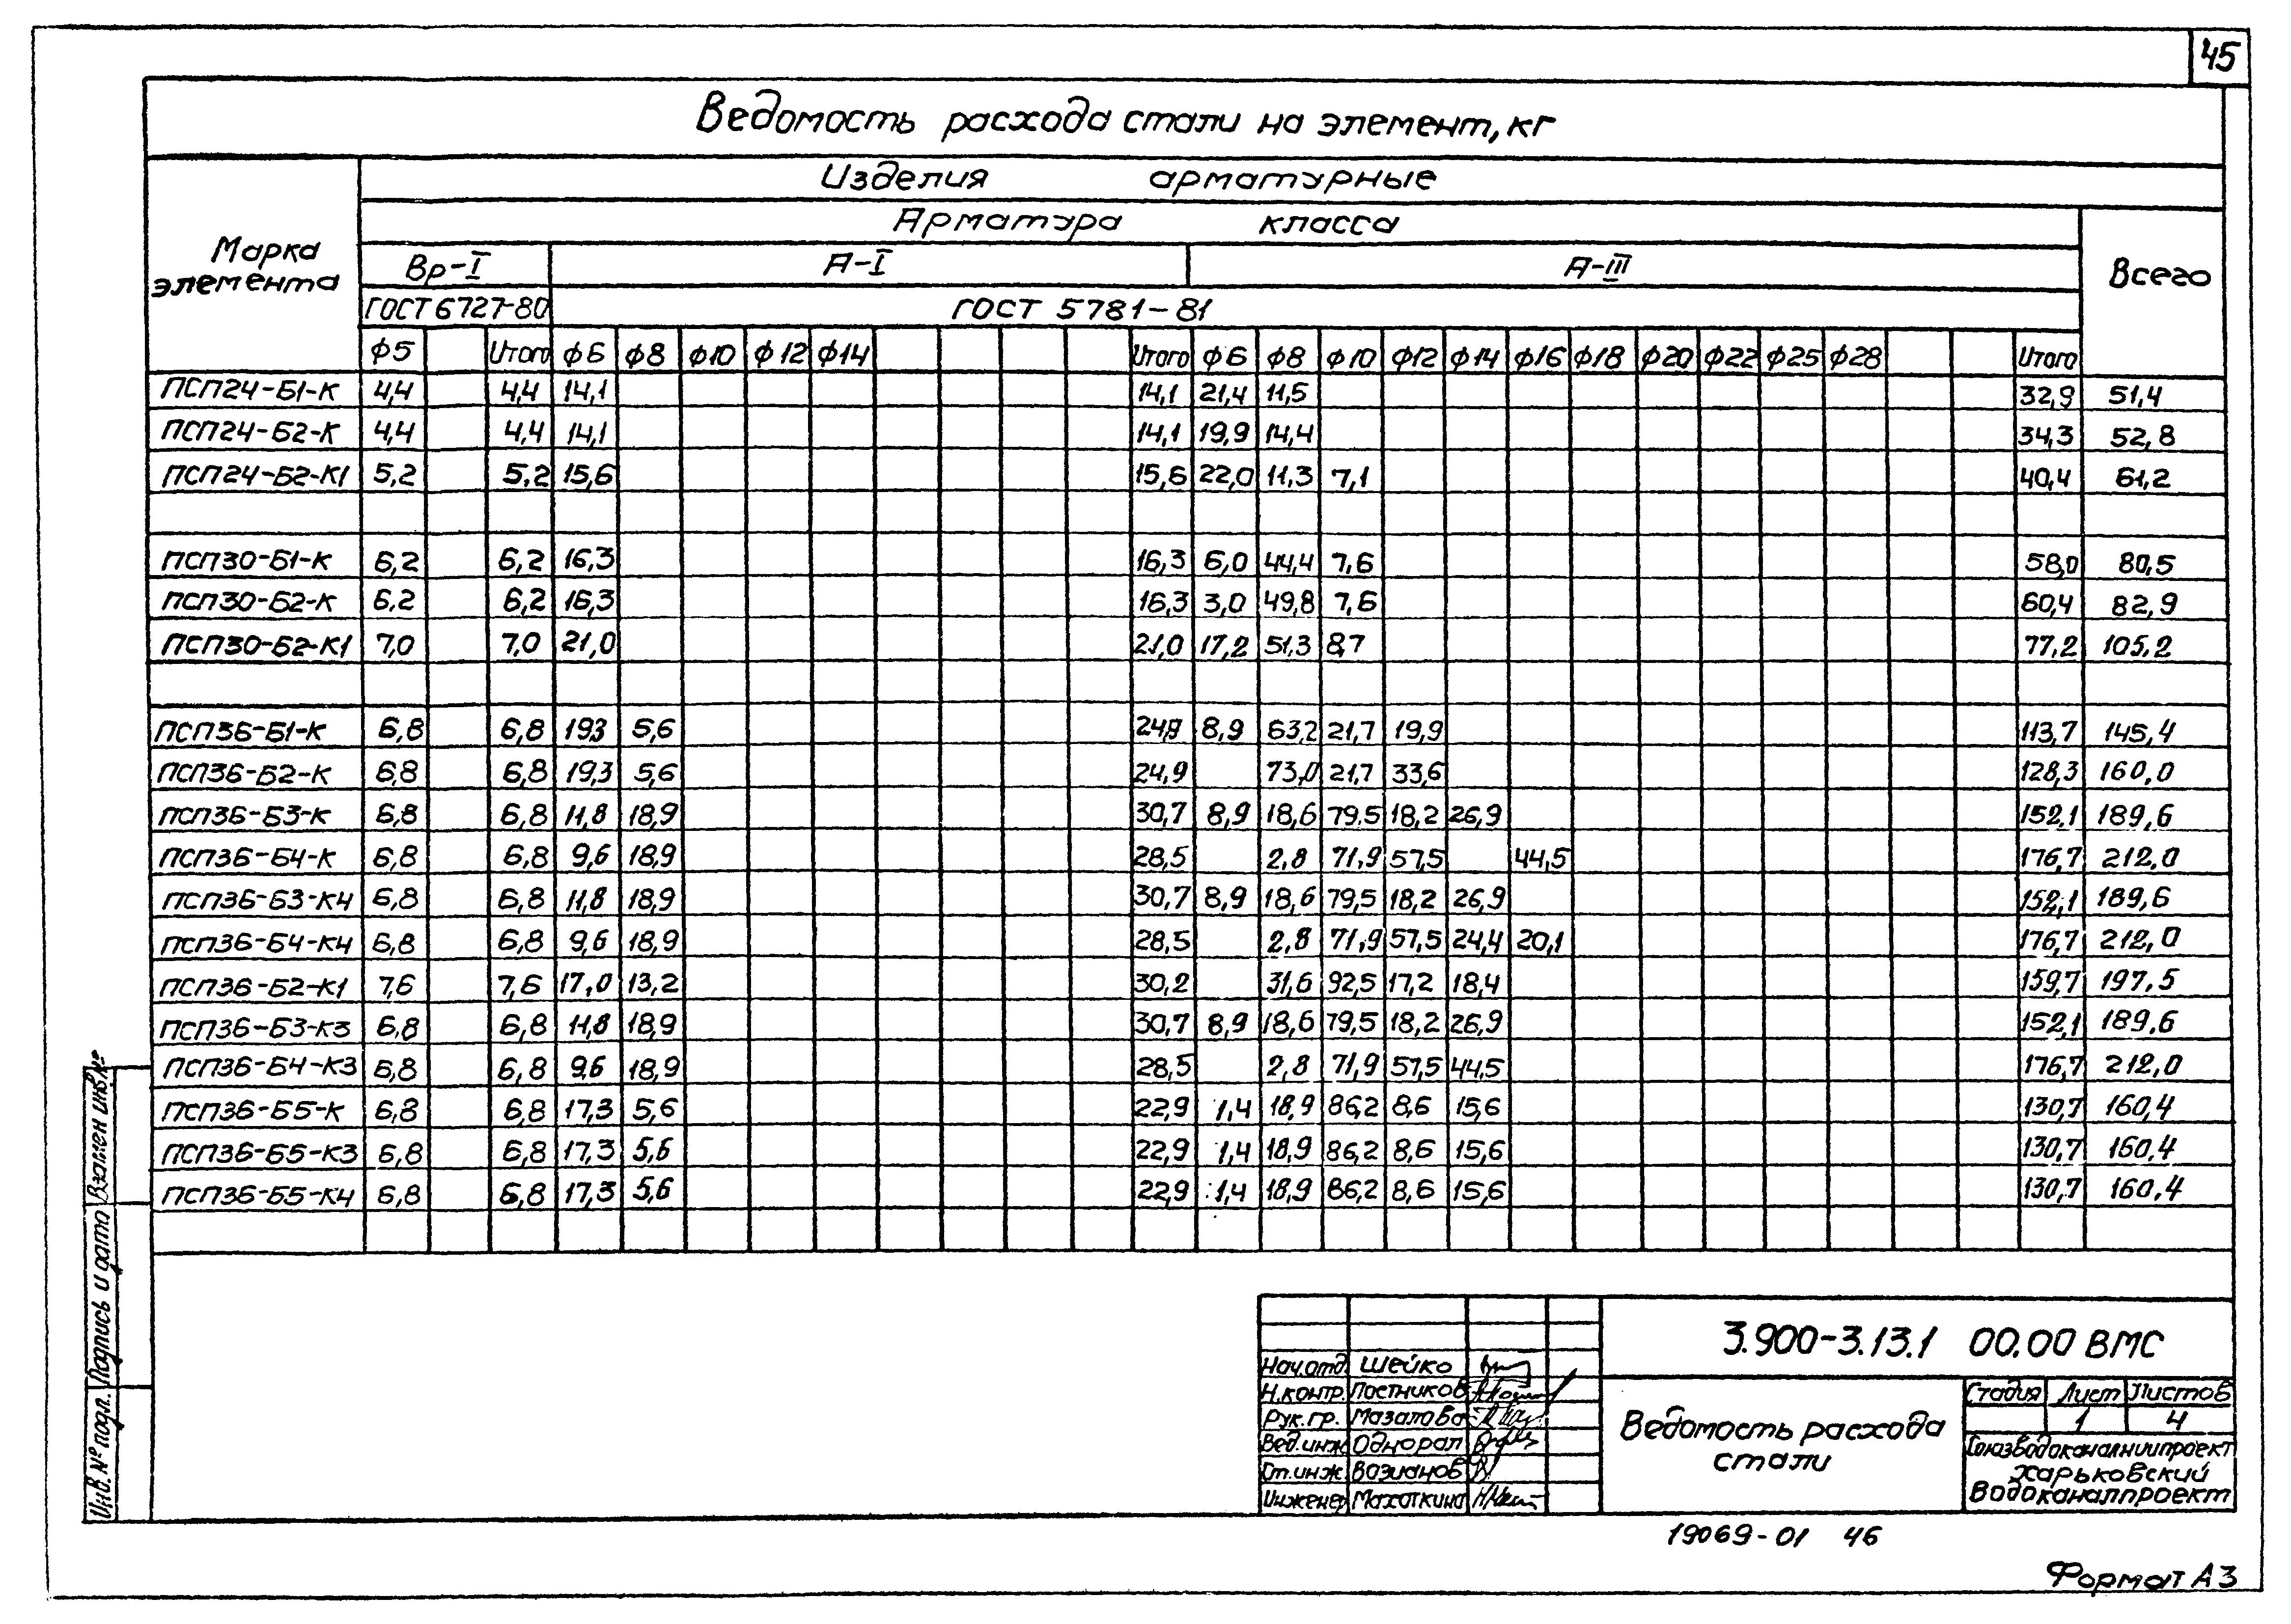 45
Ведомость расхода стали на элемент, кг
Марка элемента
Изделия арматурные
Всего
Арматура класса
Вр-I А-I А-III
ГОСТ 6727-80 ГОСТ 5781-81
ф5 Итого ф6 ф8 ф10 ф12 ф14 Итого ф6 ф8 ф10 ф12 ф14 ф16 ф18 ф20 ф22 ф25 ф28 Итого
ПСП24-Б1-К 4,4 4,4 14,1 14,1 21,4 11,5 32,9 51,4
ПСП24-Б2-К 4,4 4,4 14,1 14,1 19,9 14,4 34,3 52,8
ПСП24-Б2-К1 5,2 5,2 15,6 15,6 22,0 11,3 7,1 40,4 61,2
ПСП30-Б1-К 6,2 6,2 16,3 16,3 6,0 44,4 7,6 58,0 80,5
ПСП30-Б2-К 6,2 6,2 16,3 16,3 3,0 49,8 7,6 60,4 82,9
ПСП30-Б2-К1 7,0 7,0 21,0 21,0 17,2 51,3 8,7 77,2 105,2
ПСП36-Б1-К 6,8 6,8 19,3 5,6 24,9 8,9 63,2 21,7 19,9 113,7 145,4
ПСП36-Б2-К 6,8 6,8 19,3 5,6 24,9 73,0 21,7 33,6 128,3 160,0
ПСП36-Б3-К 6,8 6,8 11,8 18,9 30,7 8,9 18,6 79,5 18,2 26,9 152,1 189,6
ПСП36-Б4-К 6,8 6,8 9,6 18,9 28,5 2,8 71,9 57,5 44,5 176,7 212,0
ПСП36-Б3-К4 6,8 6,8 11,8 18,9 30,7 8,9 18,6 79,5 18,2 26,9 152,1 189,6
ПСП36-Б4-К4 6,8 6,8 9,6 18,9 28,5 2,8 71,9 57,5 24,4 20,1 176,7 212,0
ПСП36-Б2-К1 7,6 7,6 17,0 13,2 30,2 31,6 92,5 17,2 18,4 159,7 197,5
ПСП36-Б3-К3 6,8 6,8 11,8 18,9 30,7 8,9 18,6 79,5 18,2 26,9 152,1 189,6
ПСП36-Б4-К3 6,8 6,8 9,6 18,9 28,5 2,8 71,9 57,5 44,5 176,7 212,0
ПСП36-Б5-К 6,8 6,8 17,3 5,6 22,9 1,4 18,9 86,2 8,6 15,6 130,7 160,4
ПСП36-Б5-К3 6,8 6,8 17,3 5,6 22,9 1,4 18,9 86,2 8,6 15,6 130,7 160,4
ПСП36-Б5-К4 6,8 6,8 17,3 5,6 22,9 1,4 18,9 86,2 8,6 15,6 130,7 160,4
Взамен инв.№
Подпись и дата
Инв. № подл.
3.900-3.13.1 00.00 ВМС
Нач.отд. Шейко
Н.контр. Постников
Рук.гр. Мазалова
Вед.инж. Однорал
Ст.инж. Возианов
Инженер Махоткина
Ведомость расхода
стали
Стадия Лист Листов
1 4
Союзводоканалниипроект
Харьковский
Водоканалпроект
19069-01 46
Формат А3